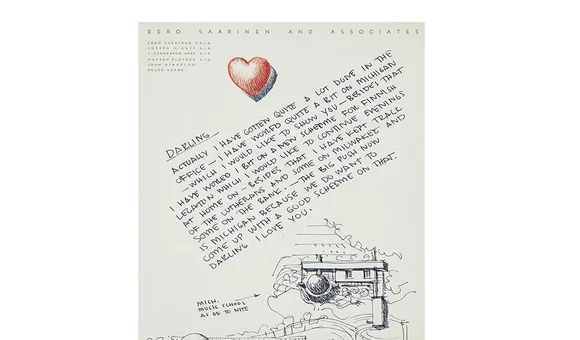 EERO SAARINEN AND ASSOCIATES
EERO SAARINEN
JOSEPH N. LACY A.I.A.
J. HENDERSON BARR A.I.A.
WARREN PLATNER A.I.A.
JOHN DINKELOO
BRUCE ADAMS
DARLING
ACTUALLY I HAVE GOTTEN QUITE A LOT DONE IN THE
OFFICE — I HAVE WORKED QUITE A BIT ON MICHIGAN
— WHICH I WOULD LIKE TO SHOW YOU — BESIDES THAT
I HAVE WORKED 1 BIT ON A NEW SCHEME FOR FINNISH
LEGATON WHICH I WOULD LIKE TO CONTINUE EVENINGS
AT HOME ON — BESIDES THAT I HAVE KEPT TRACK
OF THE LUTHERANS AND SOME ON MILWAKEE AND
SOME ON THE BANK. — THE BIG PUSH NOW
IS MICHIGAN BECAUSE WE DO WANT TO
COME UP WITH A GOOD SCHEME ON THAT.
DARLING I LOVE YOU.
MICH.
MUSIC SCHOOL
AS OF TO NITE